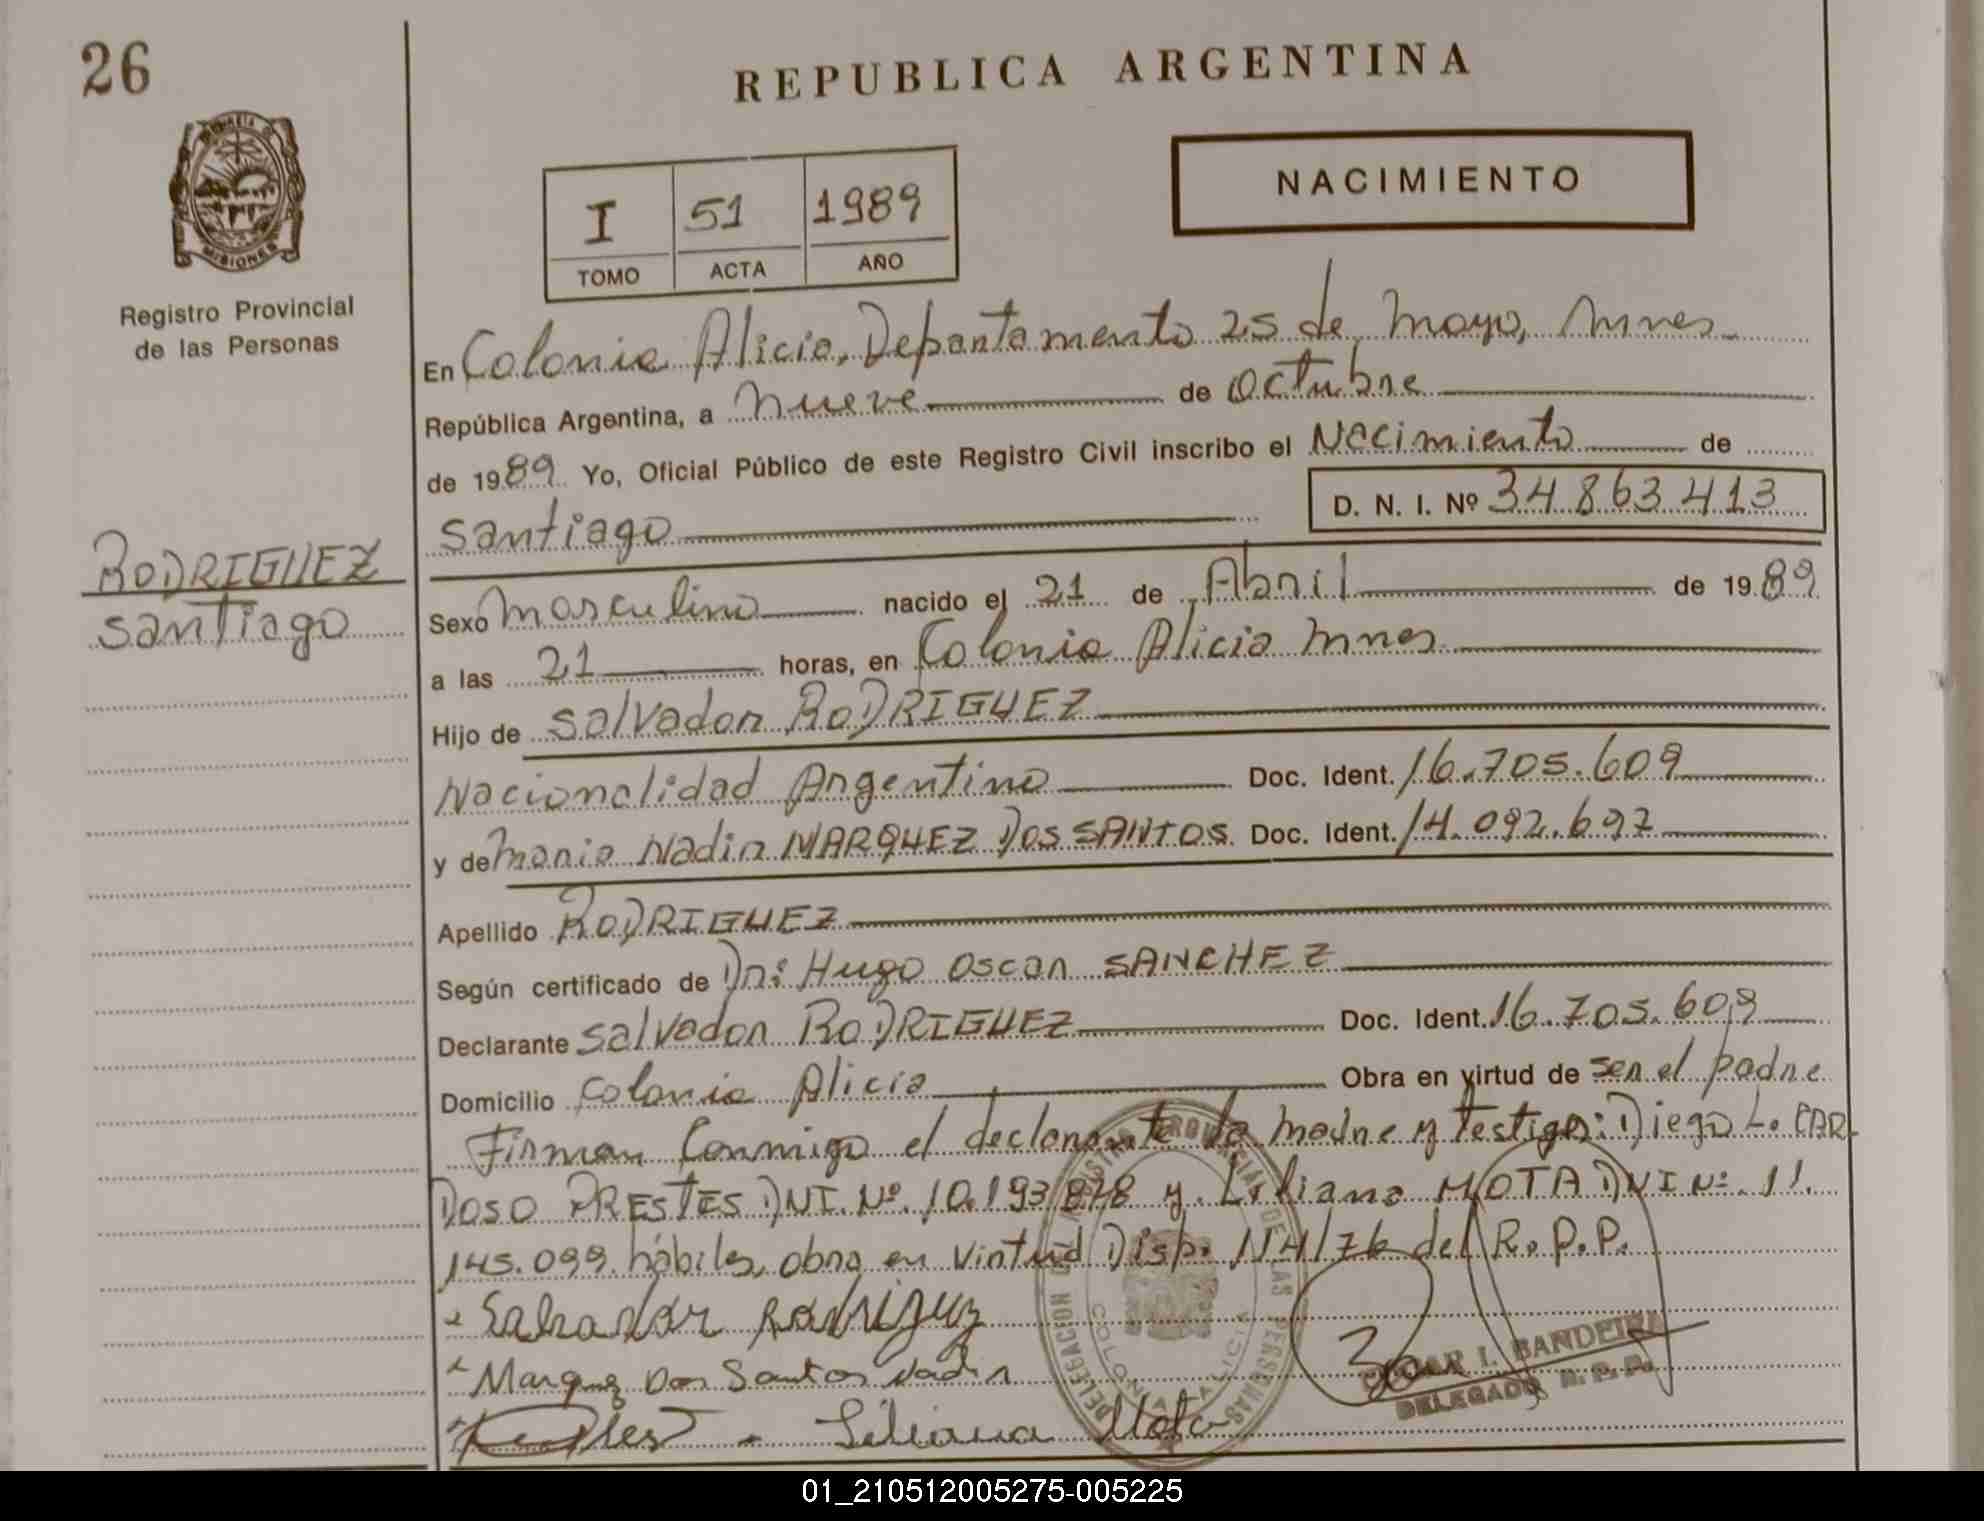 26
REPUBLICA ARGENTINA
PROVINCIA DE
MISIONES
Registro Provincial
de las Personas
I 51 1989
TOMO ACTA AÑO
NACIMIENTO
En Colonia Alicia, Departamento 25 de Mayo, Mnes
República Argentina, a nueve de octubre
de 1989 Yo, Oficial Público de este Registro Civil inscribo el Nacimiento de
Santiago D. N. I. Nº 34.863.413
RODRIGUEZ
Santiago
Sexo Masculino nacido el 21 de Abril de 1989
a las 21 horas, en Colonia Alicia Mnes
Hijo de Salvador RODRIGUEZ
Nacionalidad Argentino Doc. Ident. 16.705.609
y de Maria Nadir MARQUEZ DOS SANTOS Doc. Ident. 14.092.697
Apellido RODRIGUEZ
Según certificado de Dr: Hugo Oscar SANCHEZ
Declarante Salvador RODRIGUEZ Doc. Ident. 16.705.609
Domicilio Colonia Alicia Obra en virtud de ser el padre
Firman Conmigo el declarante la madre y testigos: Diego L. CAR
DOSO PRESTES DNI. Nº. 10.193.878 y Liliana MOTA DNI Nº 11.
145.099 hábiles, obra en virtud Disp. 114/76 del R.P.P.
Salvador Rodriguez
Marquez Dos Santos Nadir
Liliana Mota
DELEGACION DEL REGISTRO PROVINCIAL DE LAS PERSONAS
COLONIA ALICIA
I. BANDEIRA
DELEGADO R. P. P.
01_210512005275-005225